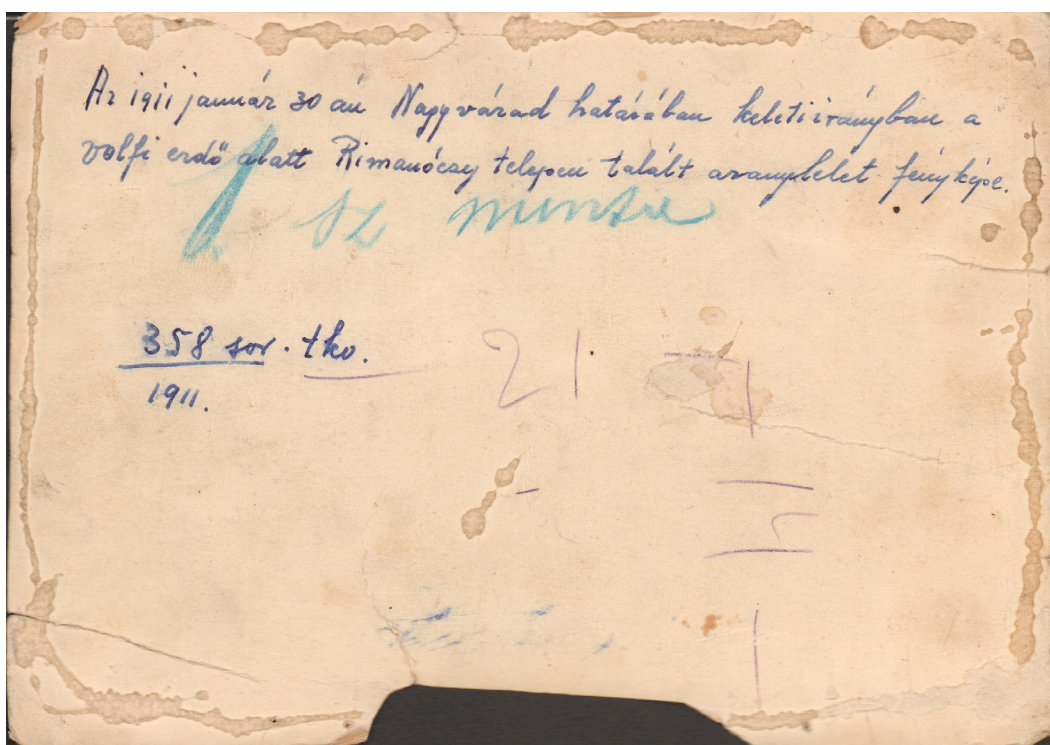 Az 1911 január 30 án Nagyvárad határában keleti irányban a
volfi erdő alatt Rimanóczy telepen talált aranylelet fényképe.
sz minta
358 sor. tko.
1911.
21